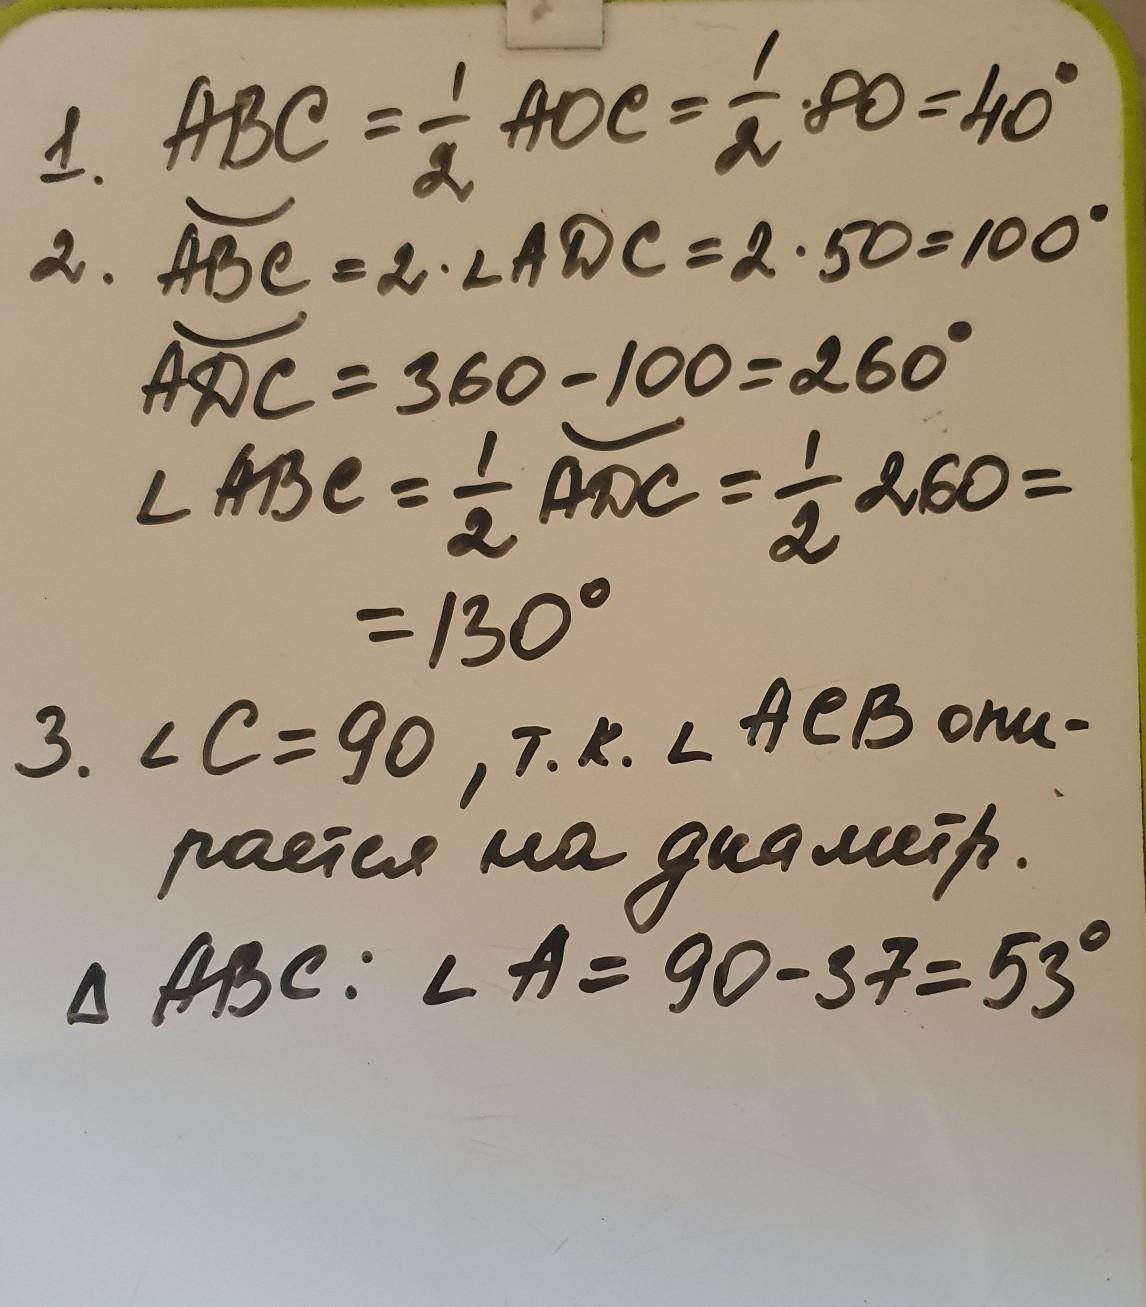 1. ABC = 1/2 AOC = 1/2 · 80 = 40°
2. ABC = 2 · ∠ADC = 2 · 50 = 100°
ADC = 360 - 100 = 260°
∠ABC = 1/2 ADC = 1/2 260 =
= 130°
3. ∠C = 90, т.к. ∠ACB опи-
рается на диаметр.
Δ ABC: ∠A = 90 - 37 = 53°